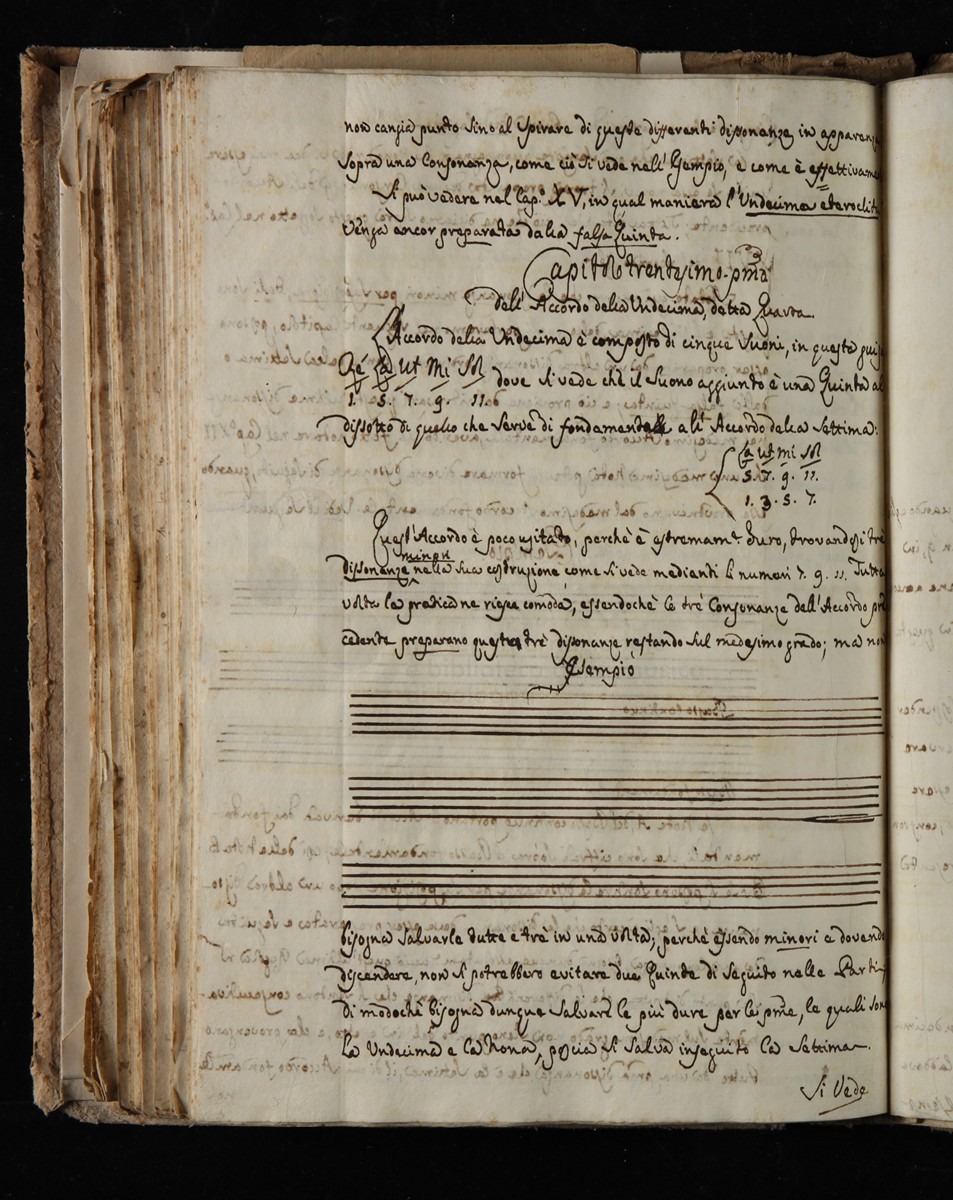 non cangia punto sino al spirare di queste differenti dissonanze in apparenza
sopra una Consonanza, come ciò si vede nell' Esempio, e come è effettivame
Si può vedere nel Cap.º XV, in qual maniera l'Undecima eteroclita
venga ancor preparata dalla falsa Quinta.
Capitolo trentesimo-pmo
dell' Accordo della Undecima, detta Quarta.
L'Accordo della Undecima è composto di cinque Suoni, in questa guisa
Ré La Ut Mi Sol
1. 5. 7. 9. 11. dove si vede chè il Suono aggiunto è una Quinta al
dissotto di quello che serve di fondamentale all' Accordo della Settima:
La ut mi Sol
5. 7. 9. 11.
1. 3. 5. 7.
Quest' Accordo è poco usitato, perchè è estremam.te Duro, trovandosi trè
minori
dissonanze nella sua costruzione come si vede medianti li numeri 7. 9. 11. Tutta
volta la pratica ne riesce comoda, essendochè le trè Consonanze dell' Accordo pre
cedente preparano queste trè dissonanze restando sul medesimo grado; ma non
Esempio
bisogna Salvarle tutte e trè in una volta; perchè essendo minori e dovendo
discendere, non si potrebbero evitare due Quinte di seguito nelle Parti
di modochè bisogna dunque Salvare le più dure per le pme, le quali son
la Undecima e la Nona, poscia si salva inseguito la Settima.
Si Vede